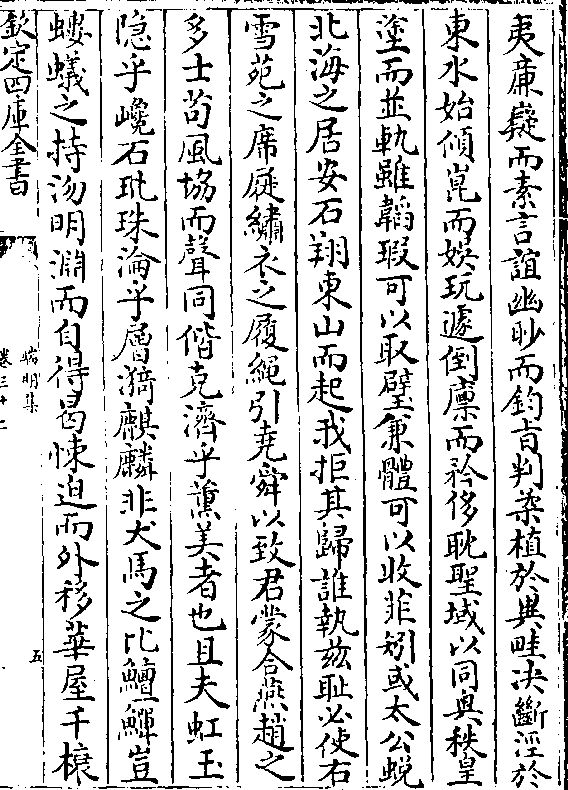 夷廉嶷而素言誼幽眇而鈎㫖判染植於與畦決斷涇於
東水始傾崑而娯玩遽倒廪而矜侈耽聖域以同輿秩皇
塗而並軌雖韜瑕可以取璧兼體可以收菲矧或太公蜕
北海之居安石翔東山而起我拒其歸誰執兹耻必使右
雪苑之席屣繡衣之履繩引堯舜以致君䝉合燕趙之
多士苟風協而聲同偕克濟乎薫美者也且夫虹玉
隠乎巉石玭珠淪乎層漪麒麟非犬馬之比鱣鱓豈
螻蟻之持沕明淵而自得曷悚迫而外移華屋千榱
欽定四庫全書
明集
卷三十一
五